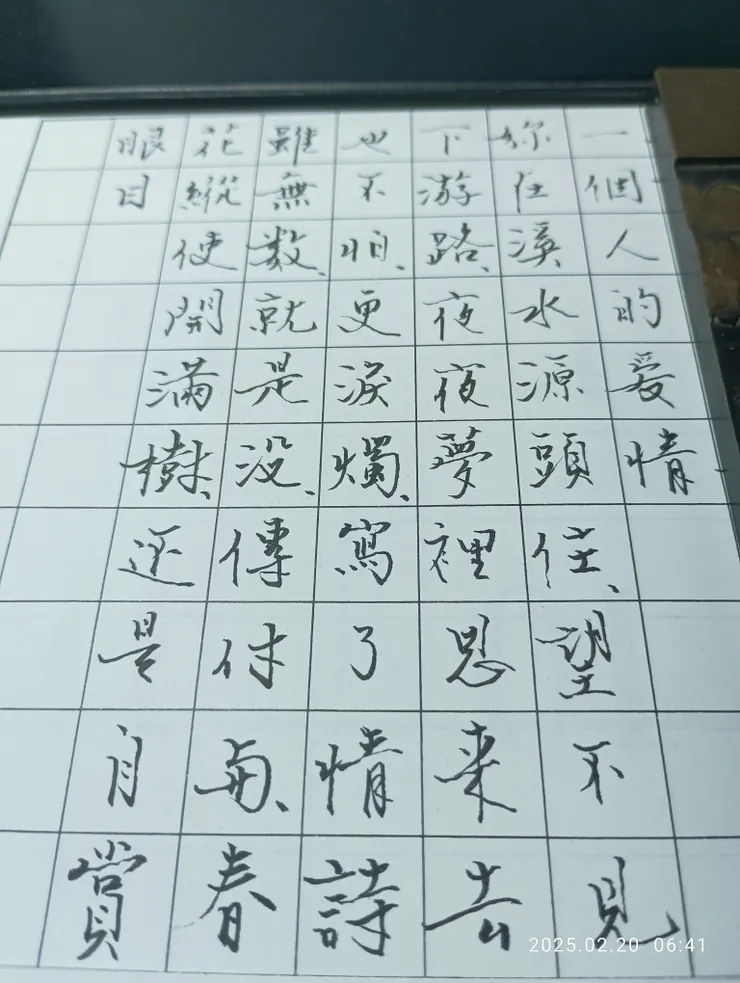 一個人的爱情
妳在溪水源頭住、望不見
下游路、夜夜夢裡思来去
也不怕、更淚燭、寫了情詩
雖無数、就是没、傳付与、春
花縱使開滿樹、还是自賞
眼目
2025.02.20 06:41